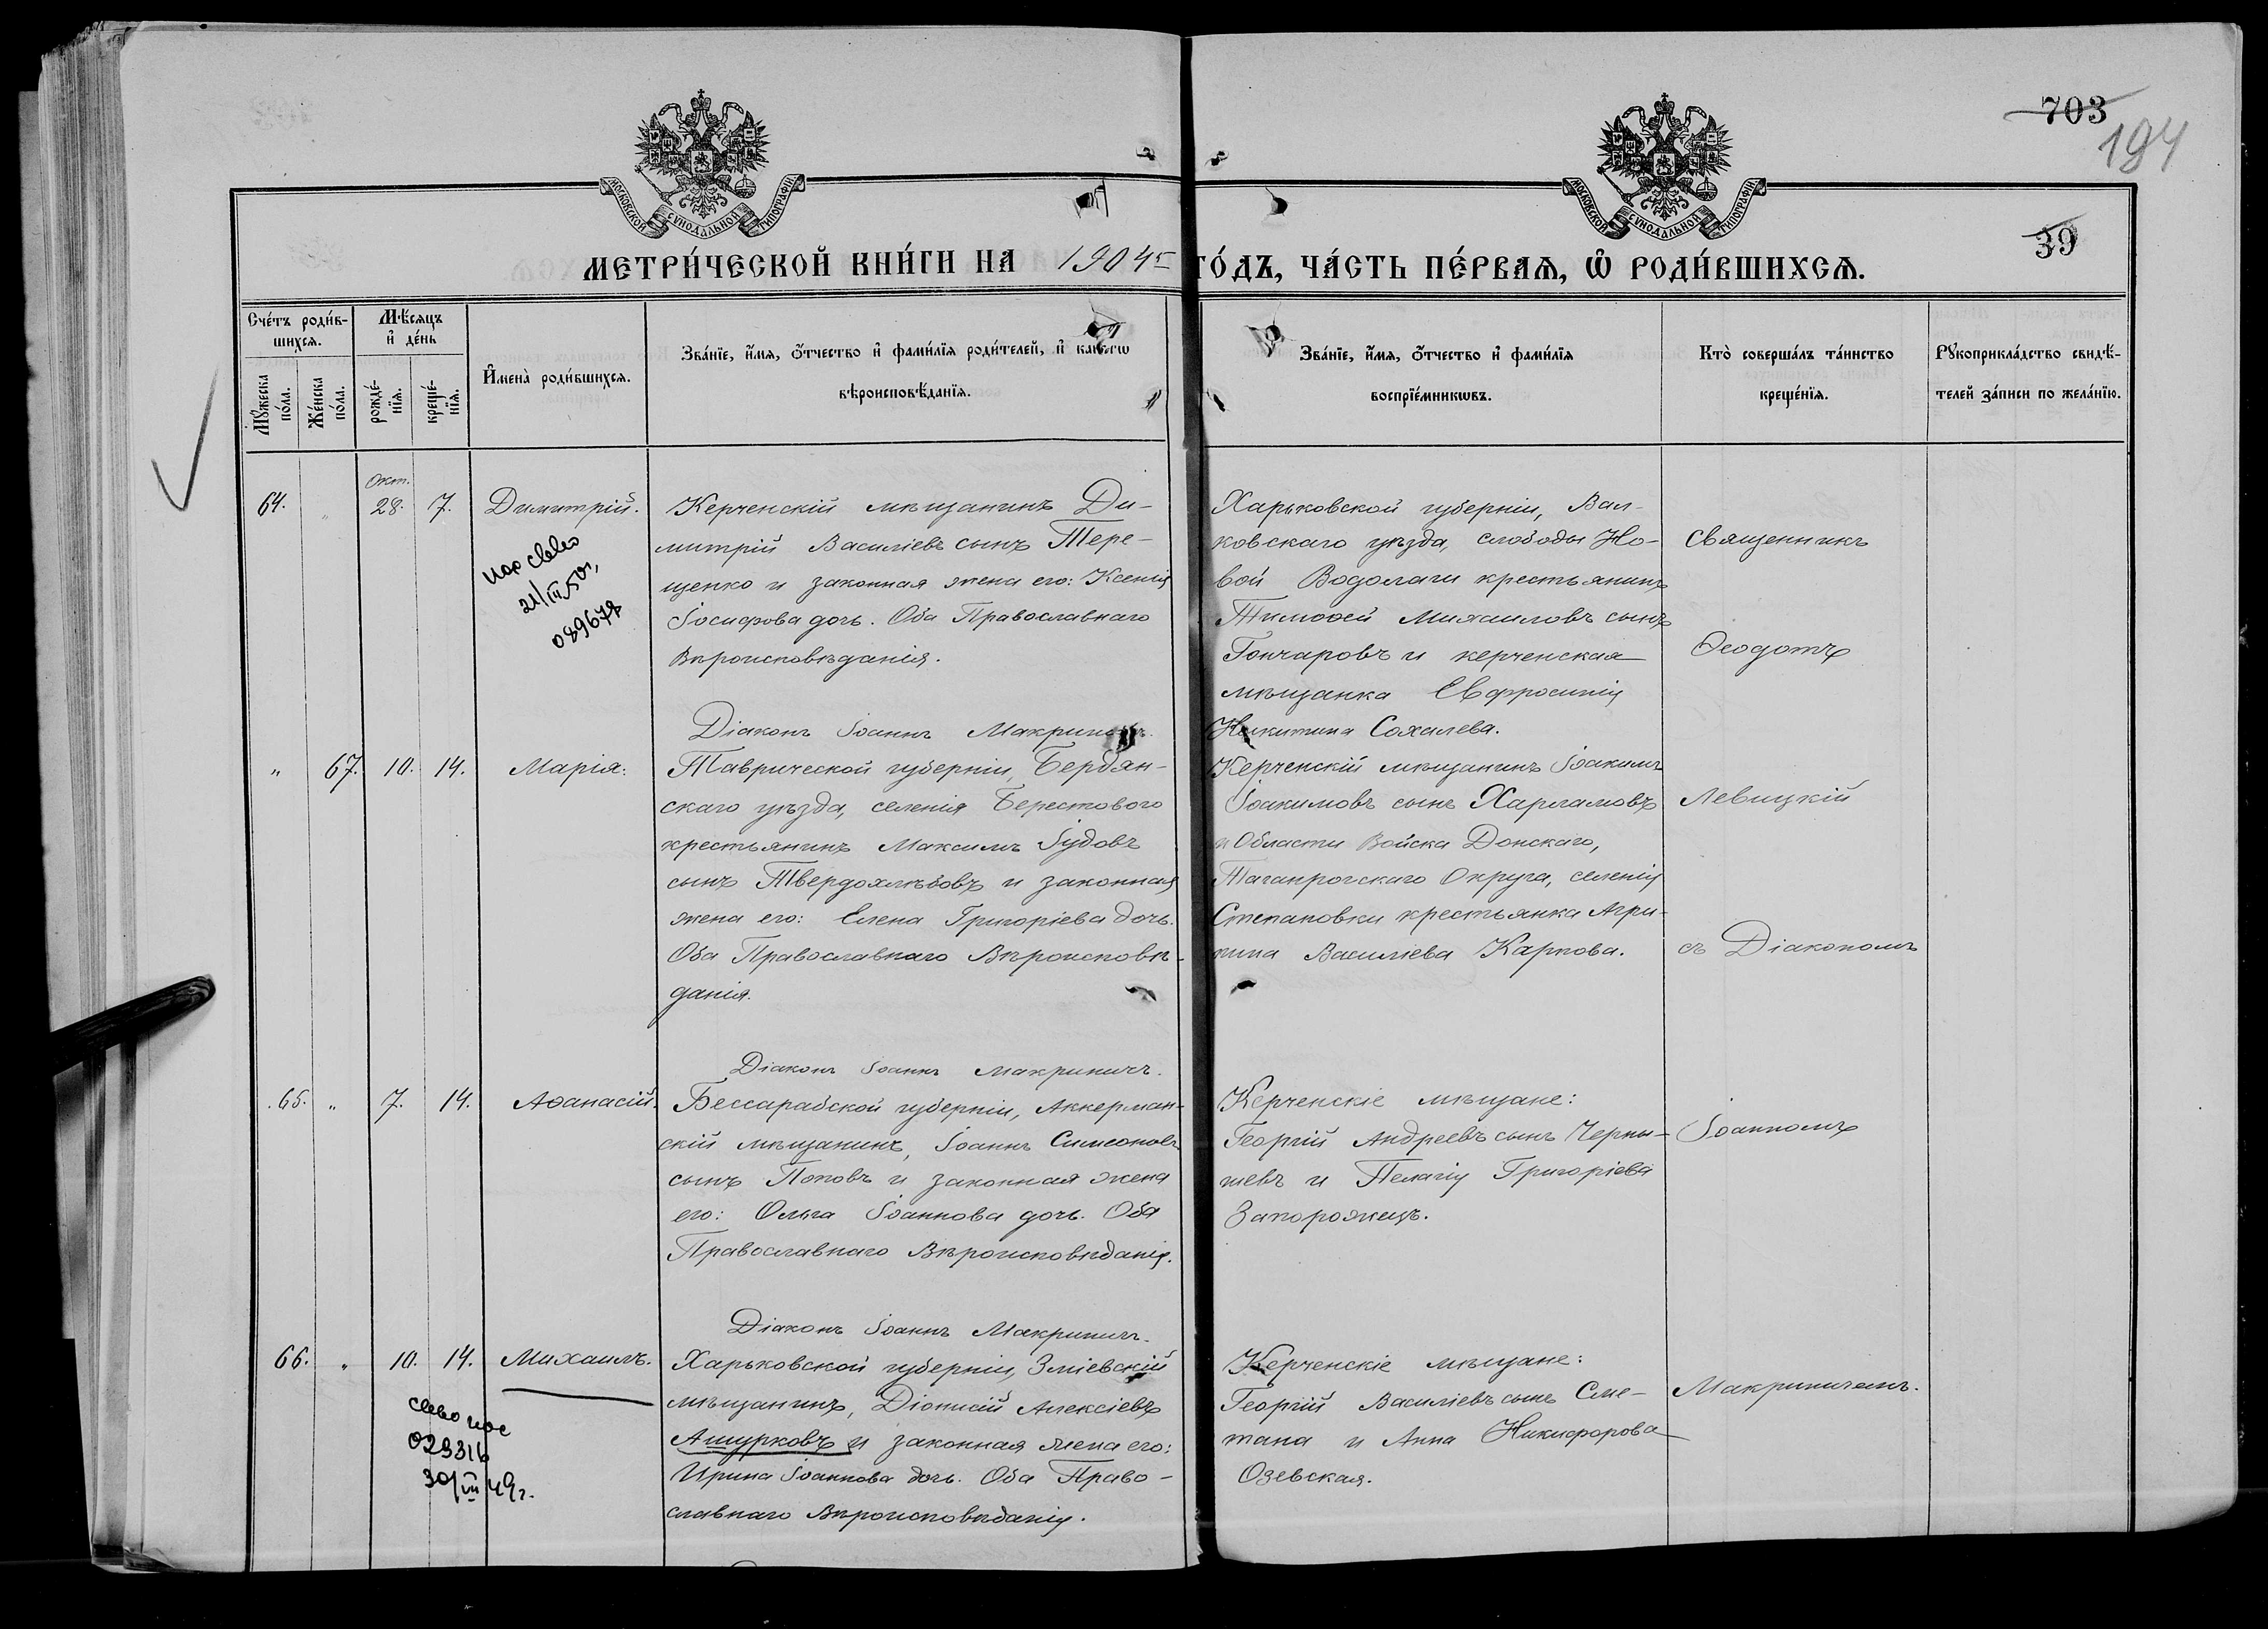 703
194
39
МОСКОВСКОЙ СѴНОДАЛЬНОЙ ТИПОГРАФІИ
МОСКОВСКОЙ СѴНОДАЛЬНОЙ ТИПОГРАФІИ
МЕТРИ́ЧЕСКОЙ КНИ́ГИ НА 1904 ГО́ДЪ, ЧА́СТЬ ПЕ́РВАѦ, Ѽ РОДИ́ВШИХСѦ.
Сче́тъ роди́в-
шихсѧ.
Мꙋ́жеска по́ла.
Же́нска по́ла.
Мѣ́сѧцъ
и҆ де́нь
рожде́-
нїѧ.
креще́-
нїѧ.
И҆мена̀ роди́вшихсѧ.
Зва́нїе, и҆́мѧ, ѻ҆́тчество и҆ фами́лїѧ роди́телей, и҆ како́гѡ
вѣроисповѣ́данїѧ.
Зва́нїе, и҆́мѧ, ѻ҆́тчество и҆ фами́лїѧ
воспрїе́мникѡвъ.
Кто̀ соверша́лъ та́инство
креще́нїѧ.
Рꙋкоприкла́дство свидѣ́-
телей за́писи по жела́нїю.
Окт.
64. " 28. 7. Димитрій.
Керченскій мѣщанинъ Ди-
митрій Василіевъ сынъ Тере-
щенко и законная жена его: Ксенія
Іосифова дочь. Оба Православнаго
Вѣроисповѣданія.
Діаконъ Іоаннъ Макриничъ.
Харьковской губерніи, Вал-
ковскаго уѣзда, слободы Но-
вой Водолаги крестьянинъ
Тимоѳей Михаиловъ сынъ
Гончаровъ и керченская
мѣщанка Евфросинія
Никитина Сохалева.
Священникъ
Ѳеодотъ
089678
" 67. 10. 14. Марія.
Таврической губерніи, Бердян-
скаго уѣзда, селенія Берестового
крестьянинъ Максимъ Іудовъ
сынъ Твердохлѣбовъ и законная
жена его: Елена Григоріева дочь.
Оба Православнаго Вѣроисповѣ-
данія.
Діаконъ Іоаннъ Макриничъ.
Керченскій мѣщанинъ Іоакимъ
Іоакимовъ сынъ Харламовъ
и Области Войска Донскаго,
Таганрогскаго Округа, селенія
Степановки крестьянка Агри-
пина Василіева Карпова.
Левицкій
съ Діакономъ
65. " 7. 14. Аѳанасій.
Бессарабской губерніи, Аккерман-
скій мѣщанинъ, Іоаннъ Симеоновъ
сынъ Поповъ и законная жена
его: Ольга Іоаннова дочь. Оба
Православнаго Вѣроисповѣданія.
Діаконъ Іоаннъ Макриничъ.
Керченскіе мѣщане:
Георгій Андреевъ сынъ Черны-
шевъ и Пелагія Григоріева
Запорожецъ.
Іоанномъ
66. " 10. 14. Михаилъ.
Харьковской губерніи, Зміевскій
мѣщанинъ, Діонисій Алексіевъ
Ашурковъ и законная жена его:
Ирина Іоаннова дочь. Оба Право-
славнаго Вѣроисповѣданія.
Керченскіе мѣщане:
Георгій Василіевъ сынъ Сме-
тана и Анна Никифорова
Озевская.
Макриничемъ.
029316
30/VII 49г.